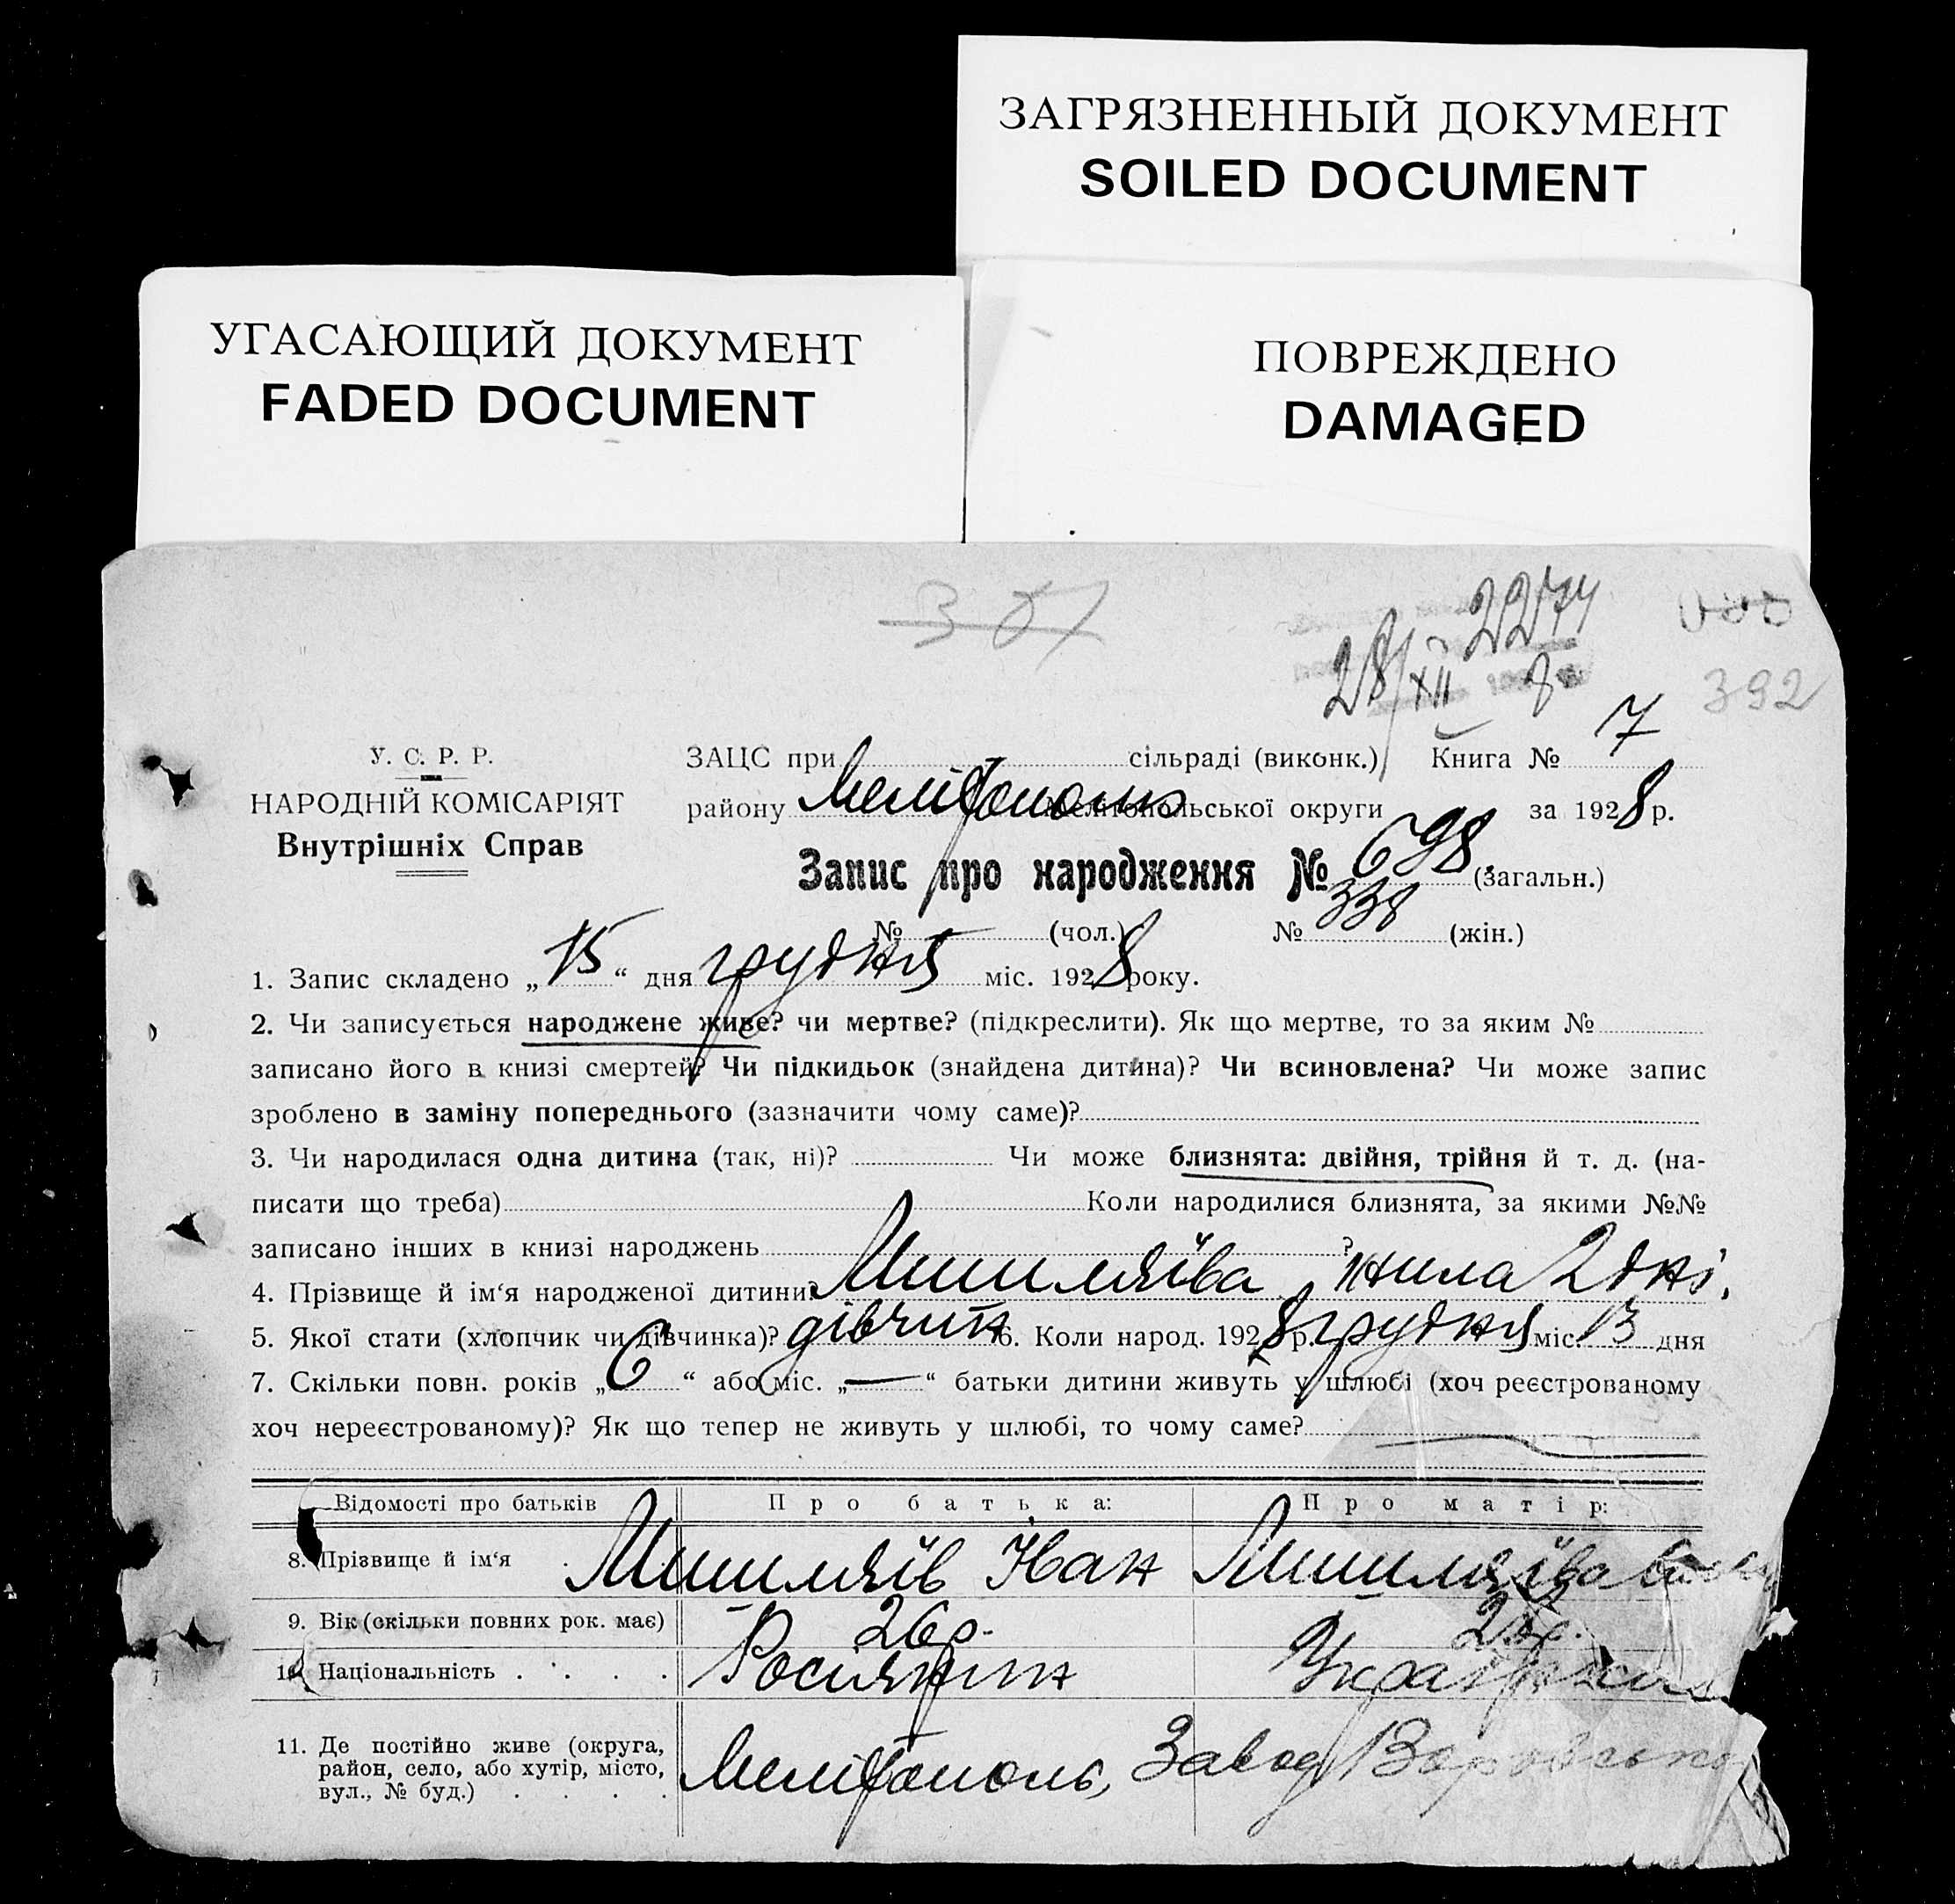 ЗАГРЯЗНЕННЫЙ ДОКУМЕНТ
SOILED DOCUMENT
УГАСАЮЩИЙ ДОКУМЕНТ
FADED DOCUMENT
ПОВРЕЖДЕНО
DAMAGED
28/XII 8
392
У. С. Р. Р.
НАРОДНІЙ КОМІСАРІЯТ
Внутрішніх Справ
ЗАЦС при сільраді (виконк.) Книга № 7
району Мелітополь Мелітопольської округи за 1928 р.
Запис про народження № 698 (загальн.)
№ (чол.) № 338 (жін.)
1. Запис складено „15“ дня грудня міс. 1928 року.
2. Чи записується народжене живе? чи мертве? (підкреслити). Як що мертве, то за яким №
записано його в книзі смертей? Чи підкидьок (знайдена дитина)? Чи всиновлена? Чи може запис
зроблено в заміну попереднього (зазначити чому саме)?
3. Чи народилася одна дитина (так, ні)? Чи може близнята: двійня, трійня й т. д. (на-
писати що треба) Коли народилися близнята, за якими №№
записано інших в книзі народжень ?
4. Прізвище й ім‘я народженої дитини? жила 2 дні.
5. Якої стати (хлопчик чи дівчинка)? дівчин 6. Коли народ. 1928 р. грудня міс. 13 дня
7. Скільки повн. років „6“ або міс. „—“ батьки дитини живуть у шлюбі (хоч реєстрованому
хоч нереєстрованому)? Як що тепер не живуть у шлюбі, то чому саме?
Відомості про батьків Про батька: Про матір:
8. Прізвище й ім‘я Іван
9. Вік (скільки повних рок. має) 26 р.
10. Національність Росіянин Українка
11. Де постійно живе (округа,
район, село, або хутір, місто,
вул., № буд.) Мелітополь, Завод Воровсько